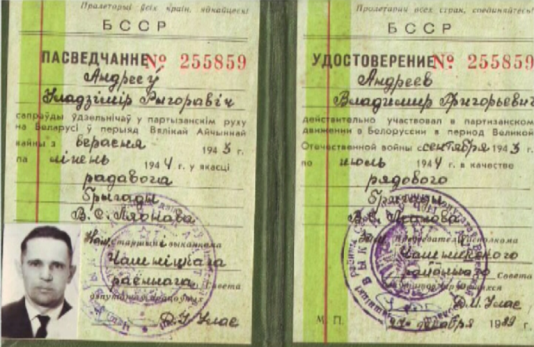 Пралетарыі ўсіх краін, яднайцеся!
БССР
ПАСВЕДЧАННЕ № 255859
Андрееў
Уладзімір Рыгоравіч
сапраўды ўдзельнічаў у партызанскім руху
на Беларусі ў перыяд Вялікай Айчыннай
вайны з верасня 1943 г.
па ліпень 1944 г. у якасці
радавога
брыгады
Нам. старшыні выканкома
раённага Савета
дэпутатаў працоўных
Пролетарии всех стран, соединяйтесь!
БССР
УДОСТОВЕРЕНИЕ № 255859
Андреев
Владимир Григорьевич
действительно участвовал в партизанском
движении в Белоруссии в период Великой
Отечественной войны с сентября 1943 г.
по июль 1944 г. в качестве
рядового
бригады
председателя исполкома
районного Совета
М. П.